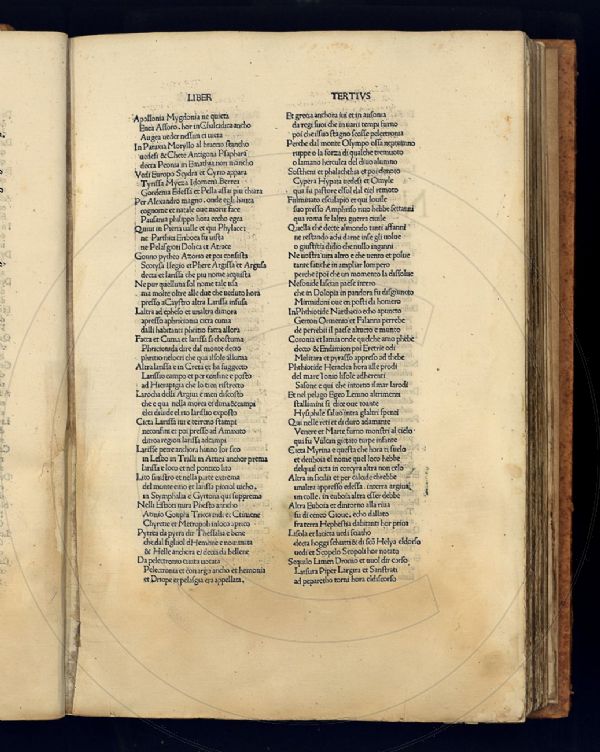 LIBER
Apollonia Mygdonia ne quieta
Euea Assoro. hor in Chalcidica ancho
Augea ueder nessun ci uieta
In Paraxia Moryllo al braccio stancho
uedesi & Chete Antigona Psaphara
decta Peonia in Emathia non mancho
Vedi Europo Scydra et Cyrro appara
Tyrissa Myeza Idomena Berrea
Gordenia Edessa et Pella assai piu chiara
Per Alexandro magno. onde egli hauea
cognome et natale oue mori face
Pausania philippo hora eccho egea
Quiui in Pieria ualle et qui Phylace
ne Parthia Euboea fu iusta
ne Pelasgioti Dolica et Atrace
Gonno pytheo Azorio et poi consista
Scotysa Ilegio et Phere Argissa et Argusa
decta et larissa che piu nome acquista
Ne pur quell una sol nome tale usa
ma molte oltre alle due che ueduto hora
presso a Caystro altra Larissa insusa
Laltra ad epheso et unaltra dimora
apresso aphricionia citta cuma
dalli habitanti phicino facta allora
Facta et Cuma et larissa si chostuma
Phriciona da dire dal monte decto
phricio uelocri che qui assole alluma
Altra larissa e in Creta et ha suggecto
Larissio campo et per confine e posto
ad Hierapigia che lo tien ristrecto
Larocha delli Argiui e men discosto
che e qua nella morea et dimanda campi
elei da iude el rio larissio exposto
Cieta Larissa sui e terreno stampi
neconfini et poi presso ad Amaxito
ditroa region larissa adcampi
Larisse petre anchora hanno lor sico
in Lesbo in Tralli in Attica anchor prema
larissa e loco et nel pontico lito
Lito sinistro et nella parte extrema
del monte emo et larissa piccol uicho,
in Nymphalia et Gyrtona qui suprema
Nelli Estioti mura Phesto anncho
Atinio Gomphi Tricca indi et Ctimene
Chyrette et Metropoli in loco aprico
Pyrrea da pyrra dir Thessalia e bene
che dal figliuol d Hemone e nominata
& Helle anchora et decta da hellene
Da peletronio tanta uocata
Peletronia et con argo ancho et hemonia
et Driope et pelasgia era appellata,
TERTIVS
Et greca anchora fui et in ausonia
da regi suoi che in uarii tempi furno
poi che issuo stagno scosse peletronia
Perche dal monte Olympo ossa neptunno
ruppe o la forza di qualche tremuoto
o lamano herculea del diuo alumno
Sosthem et phalachthia et poi denoto
Cypera Hypata uedesi et Omyle
qua fu pastore essul dal ciel remoto
Fulminato esculapio et qui louile
suo presso Amphriso rino hebbe settanni
qua roma fe laltra guerra ciuile
Quella che decte almondo tanti affanni
ne restando achi dante inse gli uolue
o giustitia didio che nullo inganni
Ne uostra uita altro e che uento et polue
tante fatiche in ampliar lompero
perche ipoi che un momento la dissolue
Nesonide lascian paese intero
che in Dolopia in pandora fu disgiuncto
Mirmidoni oue en posti da homero
In Phthiotide Narthacio echo apuncto
Gerton Ormenio et Falanna perrebe
de perrebii il paese altutto e munto
Coronia et lamia onde qualche amo phebe
decto & Endimion poi Eretrie odi
Melitara et pyrasso appreso ad thebe
Phthiotide Heraclea hora alle prodi
del mare Ionio lisole adherenti
Sasone e qui che intorno il mar larodi
Et nel pelago Egeo Lemno altrimenti
stalliumini si dice oue toante
Hysphile saluo intra glaltri spenti
Qui nelle reti et di duro adamante
Venere et Marte furno monstri al cielo
qui fu Vulcan gittato turpe infante
Cieta Myrina e questa che hora ti suelo
et denhoia el nome quel loco hebbe
delqual cieta in cotcyra altra non celo
Altra in sicilia et per calcide chrebbe
unaltra appresso edessa . interra argiua
un colle . in euboia altra esser debbe
Altra Euboia et dintorno alla riua
fui di ceneo Gioue. echo dallato
fra terra Hephestia dabitanti hor priua
Lisola et la cieta uedi scatho
decta hoggi schiatti & di sco Helya eldorso
uedi et Scopelo Scopoli hor notato
Seguilo Limen Dronio et nuol dir corso
Larsura Piper Largita et Sanstrati
ad peparetho torni hora el discorso